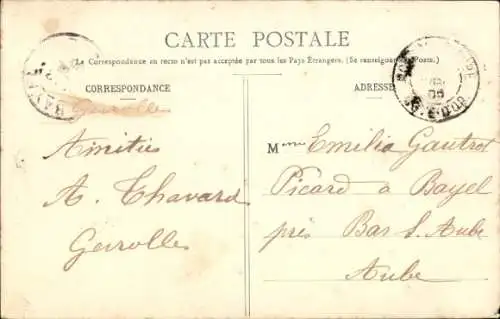 CARTE POSTALE
La Correspondance au recto n'est pas acceptée par tous les Pays Étrangers. (Se renseigner à la Poste).
CORRESPONDANCE
ADRESSE
Gevrolles
Amitiés
A. Chavard
Gevrolles
Mme Emilia Gautrot
Picard à Bayel
près Bar S. Aube
Aube